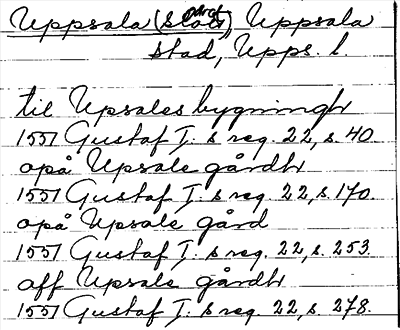 Uppsala (slott), Uppsala
stad, Upps. l.
til Upsales bygningh
1551 Gustaf I:s reg. 22, s. 40.
opå Upsale gårdh
1551 Gustaf I:s reg. 22, s. 170.
opå Upsale gård
1551 Gustaf I:s reg. 22, s. 253.
aff Upsale gårdh
1551 Gustaf I:s reg. 22, s. 278.